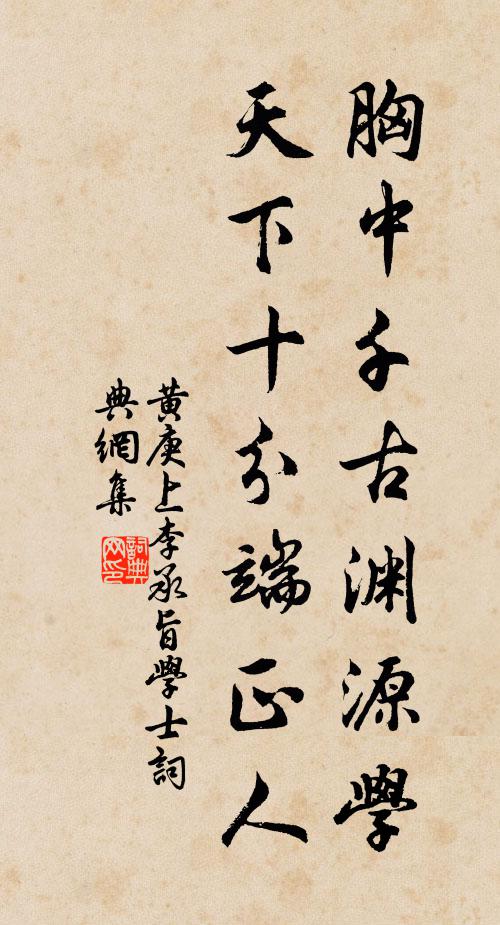 胸中千古淵源學
天下十分端正人
黃庚上李承旨學士詞
典網集
詞典
网印